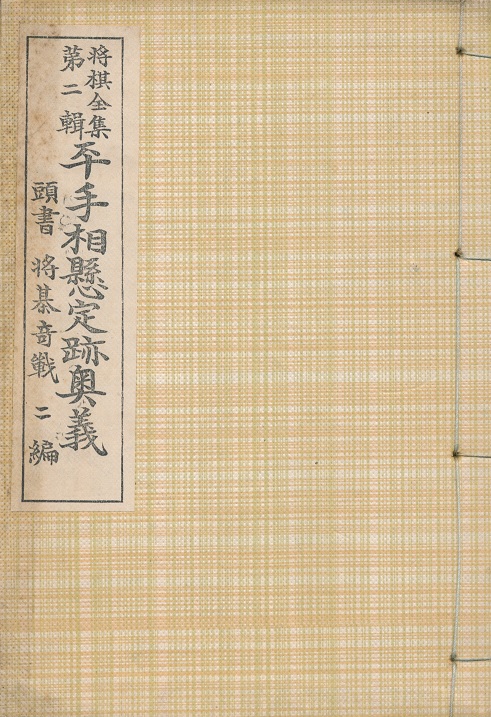 将棋全集
第二輯
平手相懸定跡奥義
頭書 将棊竒戦 二編